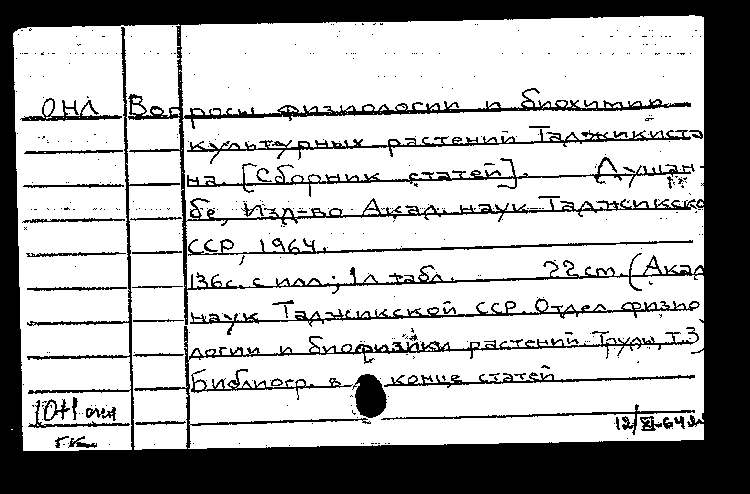 ОНЛ Вопросы физиологии и биохимии
культурных растений Таджикиста
на. [Сборник статей]. Душан-
бе, Изд-во Акад. наук Таджикско
ССР, 1964.
136с. с илл.; 1л табл. 22 cm. (Акад
наук Таджикской ССР. Отдел физио
логии и биофизики растений Труды, т.3)
Библиогр. в конце статей
10+1
12/XI-64